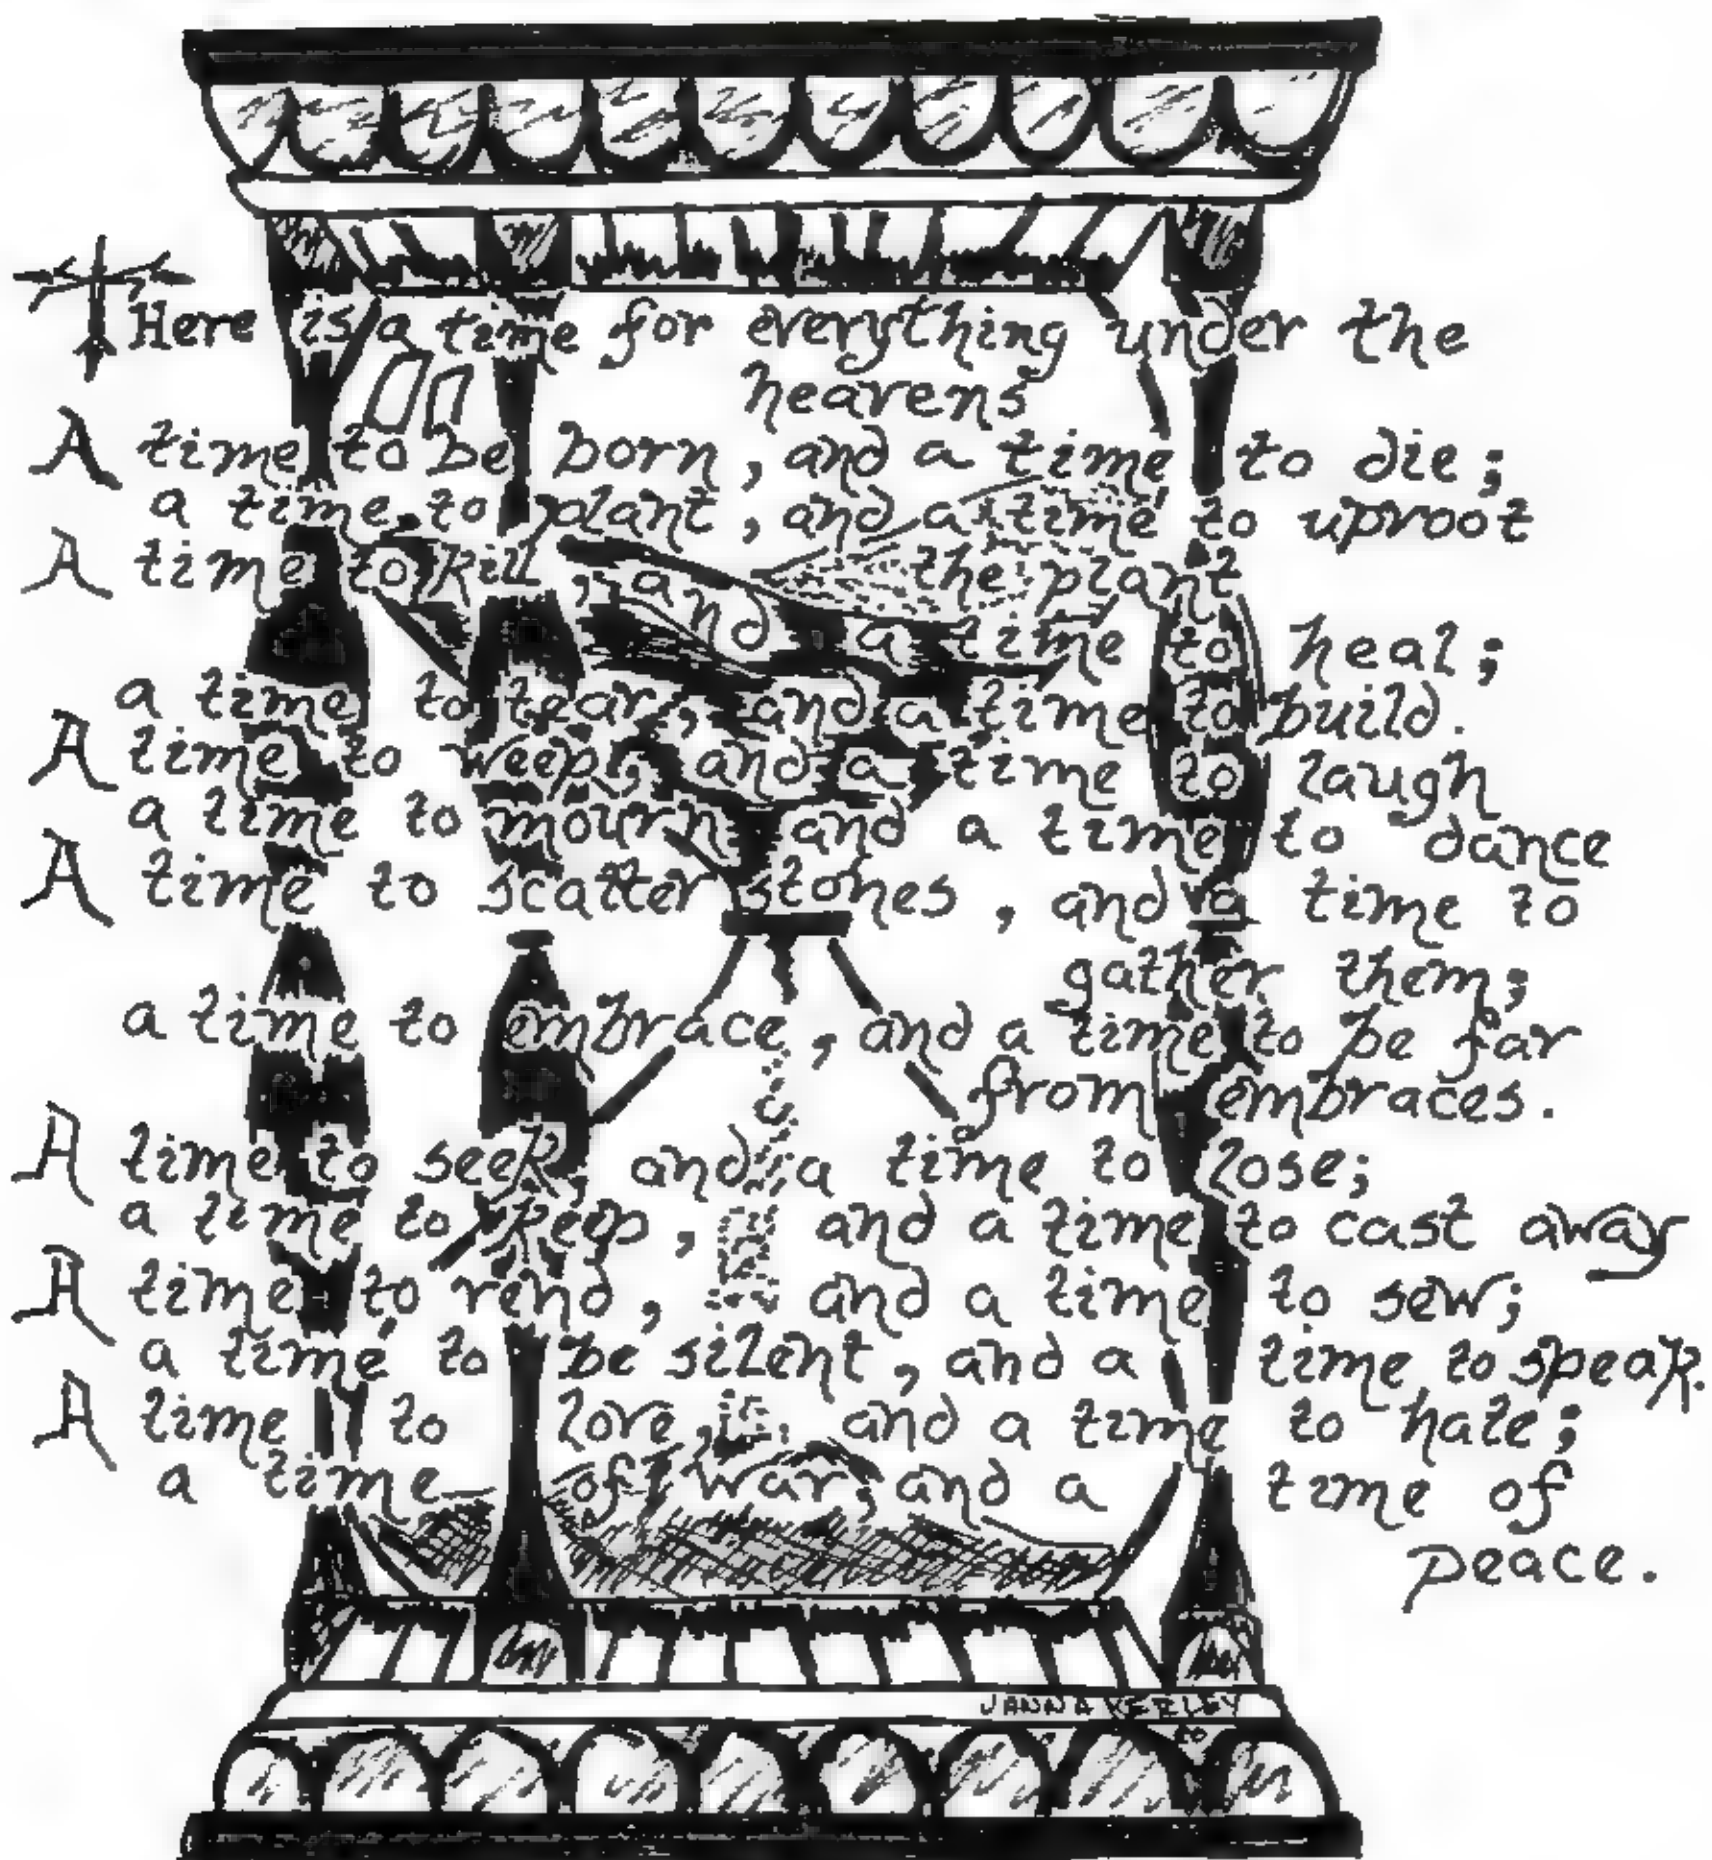 There is a time for everything under the
heavens
A time to be born, and a time to die;
a time to plant, and a time to uproot
the plant
A time to kill, and a time to heal;
a time to tear, and a time to build.
A time to weep, and a time to laugh
a time to mourn and a time to dance
A time to scatter stones, and a time to
gather them;
a time to embrace, and a time to be far
from embraces.
A time to seek, and a time to lose;
a time to keep, and a time to cast away
A time to rend, and a time to sew;
a time to be silent, and a time to speak.
A time to love, and a time to hate;
a time of war, and a time of
peace.
JANNA YERLEY